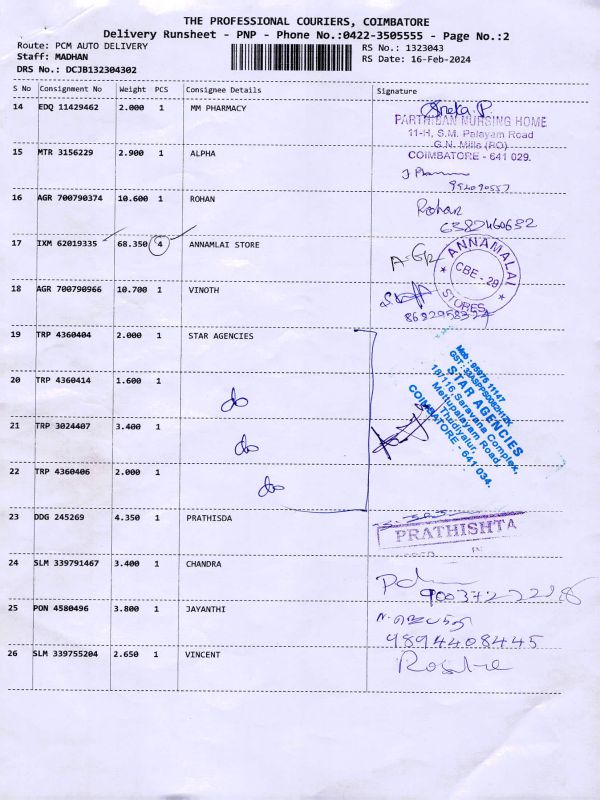 THE PROFESSIONAL COURIERS, COIMBATORE
Delivery Runsheet - PNP - Phone No.:0422-3505555 - Page No.:2
Route: PCM AUTO DELIVERY
RS No.: 1323043
Staff: MADHAN
RS Date: 16-Feb-2024
DRS No.: DCJB132304302
S No Consignment No Weight PCS Consignee Details Signature
14 EDQ 11429462 2.000 1 MM PHARMACY
PARTHIBAN NURSING HOME
11-H, S.M. Palayam Road
G.N. Mills (PO)
COIMBATORE - 641 029.
15 MTR 3156229 2.900 1 ALPHA
16 AGR 700790374 10.600 1 ROHAN
Rohan
17 IXM 62019335 68.350 4 ANNAMLAI STORE
ANNAMALAI
CBE - 29
STORES
18 AGR 700790966 10.700 1 VINOTH
19 TRP 4360404 2.000 1 STAR AGENCIES
20 TRP 4360414 1.600 1 do
21 TRP 3024407 3.400 1 do
22 TRP 4360406 2.000 1 do
STAR AGENCIES
187/116, Saravana Complex,
Mettupalayam Road,
Thudiyalur,
COIMBATORE - 641 034.
23 DDG 245269 4.350 1 PRATHISDA
PRATHISHTA
24 SLM 339791467 3.400 1 CHANDRA
25 PON 4580496 3.800 1 JAYANTHI
9894408445
26 SLM 339755204 2.650 1 VINCENT